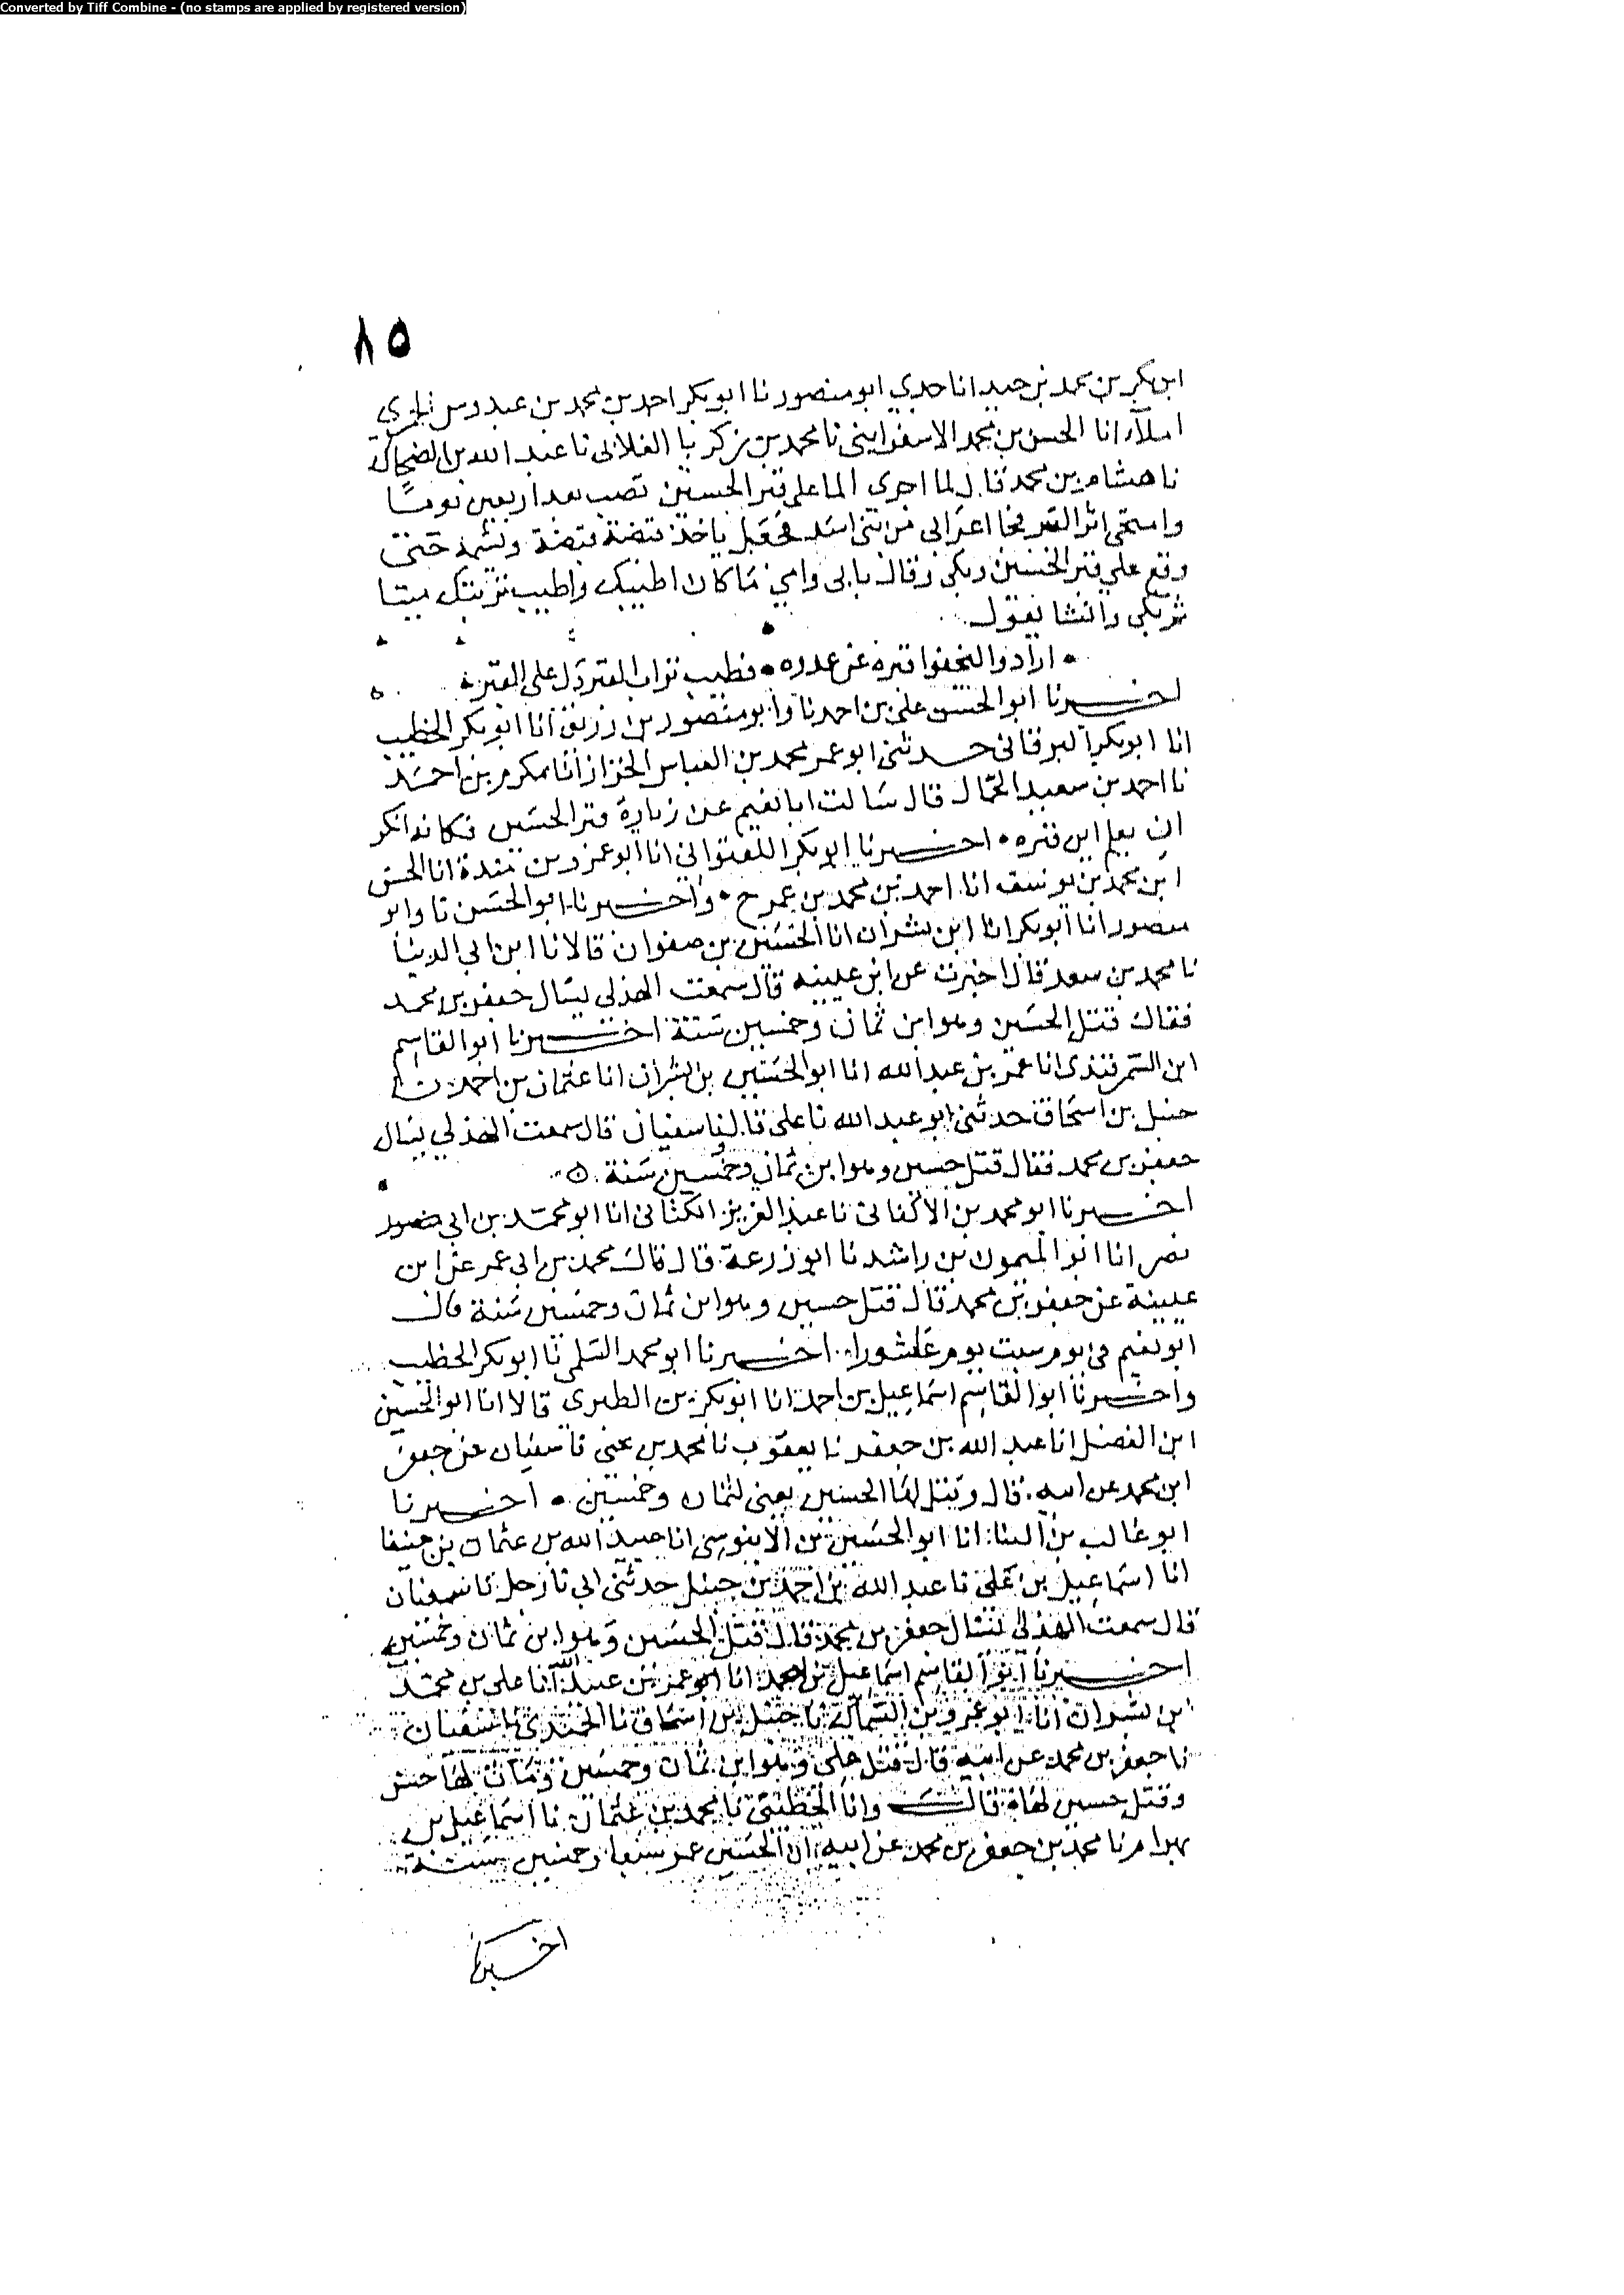 Converted by Tiff Combine - (no stamps are applied by registered version)
٨٥
ابن بكر بن محمد بن حيد انا جدي ابو منصور نا ابو بكر احمد بن محمد بن عبدوس الحيري
املاء انا الحسن بن محمد الاسفرايني نا محمد بن زكريا الغلابي نا عبد الله بن الضحاك
نا هشام بن محمد قال لما اجرى الما على قبر الحسين نضب بعد اربعين يوما
وامتحى اثر القبر فجا اعرابي من بني اسد فجعل ياخذ قبضة قبضة ويشمه حتى
وقع على قبر الحسين وبكى وقال بابي وامي ما كان اطيبك واطيب تربتك ميتا
ثم بكى وانشا يقول
ارادوا ليخفوا قبره عن عدوه • فطيب تراب القبر دل على القبر
اخبرنا ابو الحسن علي بن احمد نا وابو منصور بن زريق انا ابو بكر الخطيب
انا ابو بكر البرقاني حدثني ابو عمر محمد بن العباس الخزاز انا مكرم بن احمد
نا احمد بن سعيد الحمال قال سالت ابا نعيم عن زيارة قبر الحسين فكانه انكر
ان يعلم اين قبره • اخبرنا ابو بكر اللفتواني انا ابو عمرو بن مندة انا الحسن
ابن محمد بن يوسف انا احمد بن محمد بن عمر ح • واخبرنا ابو الحسن نا وابو
منصور انا ابو بكر انا ابن بشران انا الحسين بن صفوان قالا نا ابن ابي الدنيا
نا محمد بن سعد قال اخبرت عن ابن عيينه قال سمعت الهذلي يسال جعفر بن محمد
فقال قتل الحسين وهو ابن ثمان وخمسين سنة اخبرنا ابو القاسم
ابن السمرقندي انا عمر بن عبد الله انا ابو الحسين بن بشران انا عثمان بن احمد نا
حنبل بن اسحاق حدثني ابو عبد الله نا علي قال نا سفيان قال سمعت الهذلي يسال
جعفر بن محمد فقال قتل حسين وهو ابن ثمان وخمسين سنة
اخبرنا ابو محمد بن الاكفاني نا عبد العزيز الكتاني انا ابو محمد بن ابي
نصر انا ابو الميمون بن راشد نا ابو زرعة قال قال محمد بن ابي عمر عن ابن
عيينة عن جعفر بن محمد قال قتل حسين وهو ابن ثمان وخمسين سنة قال
ابو نعيم في يوم سبت يوم عاشورا اخبرنا ابو محمد السلمي نا ابو بكر الخطيب
واخبرنا ابو القاسم اسماعيل بن احمد انا ابو بكر بن الطبري قالا انا ابو الحسين
ابن الفضل انا عبد الله بن جعفر نا يعقوب نا محمد بن يحيى نا سفيان عن جعفر
ابن محمد عن ابيه قال وقتل لها الحسين يعني لثمان وخمسين • اخبرنا
ابو غالب بن البنا انا ابو الحسين بن الابنوسي انا عبيد الله بن عثمان بن جنيقا
انا اسماعيل بن علي نا عبد الله بن احمد بن حنبل حدثني ابي نا رجل نا سفيان
قال سمعت الهذلي يسال جعفر بن محمد قال قتل الحسين وهو ابن ثمان وخمسين
اخبرنا ابو القاسم اسماعيل بن احمد انا ابو عمر بن عبد الله انا علي بن محمد
ابن بشران انا ابو عمرو بن السماك نا حنبل بن اسحاق نا الحميدي نا سفيان
نا جعفر بن محمد عن ابيه قال قتل علي وهو ابن ثمان وخمسين ومات لها حسن
وقتل حسين لها قال وانا نا محمد بن عثمان نا اسماعيل بن
بهرام نا محمد بن جعفر بن محمد عن ابيه ان الحسين عمر سبعا وخمسين سنة
اخبرنا